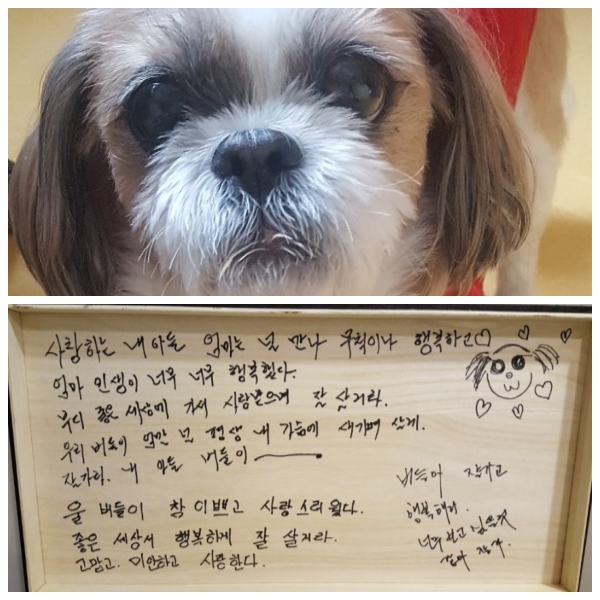 사랑하는 내 아들 엄마는 널 만나 무척이나 행복하고♡
엄마 인생이 너무 너무 행복했다.
부디 좋은 세상에 가서 사랑받으며 잘 살거라.
우리 버들이 엄만 널 평생 내 가슴에 새기며 살게.
잘가라. 내 아들 버들이
울 버들이 참 이쁘고 사랑스러웠다.
좋은 세상서 행복하게 잘 살거라.
고맙고. 미안하고 사랑한다.
버들아 잘가고
행복해라.
너무 보고